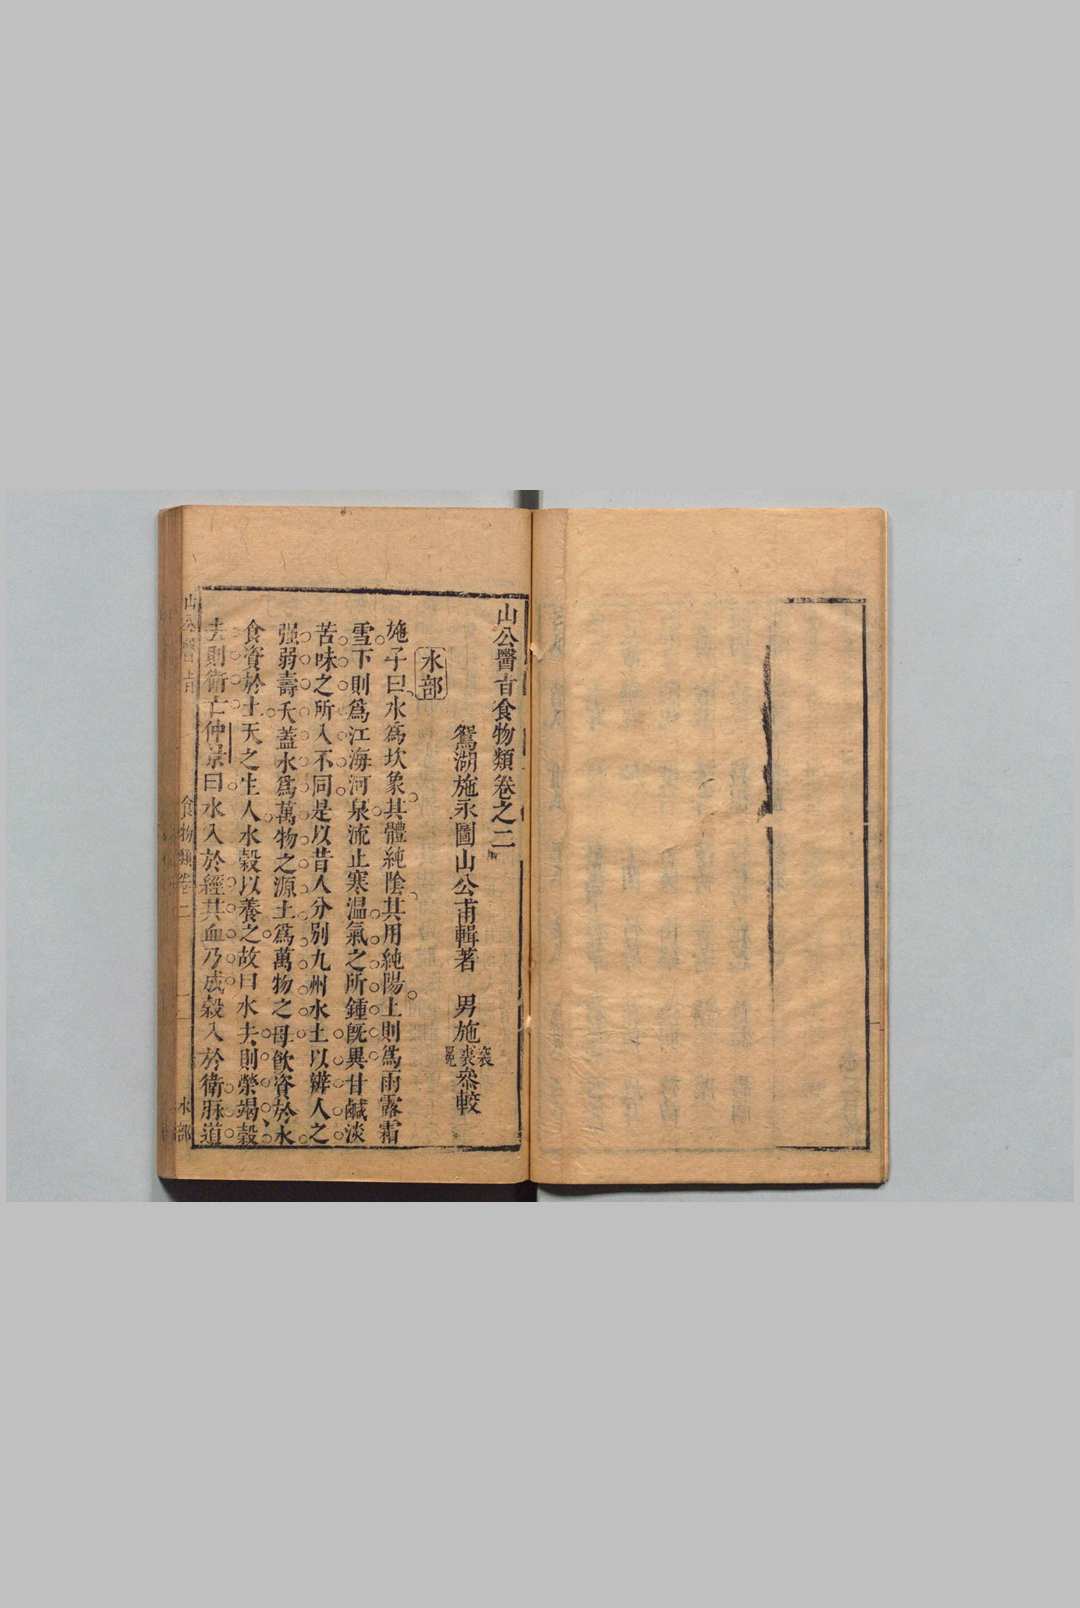 山公醫旨食物類卷之二
鴛湖施永圖山公甫輯著　男施褱裘衮叅較
水部
施子曰水爲坎象其體純陰其用純陽上則爲雨露霜
雪下則爲江海河泉流止寒温氣之所鍾旣異甘鹹淡
苦味之所入不同是以昔人分別九州水土以辨人之
强弱壽夭蓋水爲萬物之源土爲萬物之母飮資於水
食資於土天之生人水穀以養之故曰水去則榮竭穀
去則衛亡仲景曰水入於經其血乃成穀入於衛脉道
山公醫旨
食物類卷二
一
水部